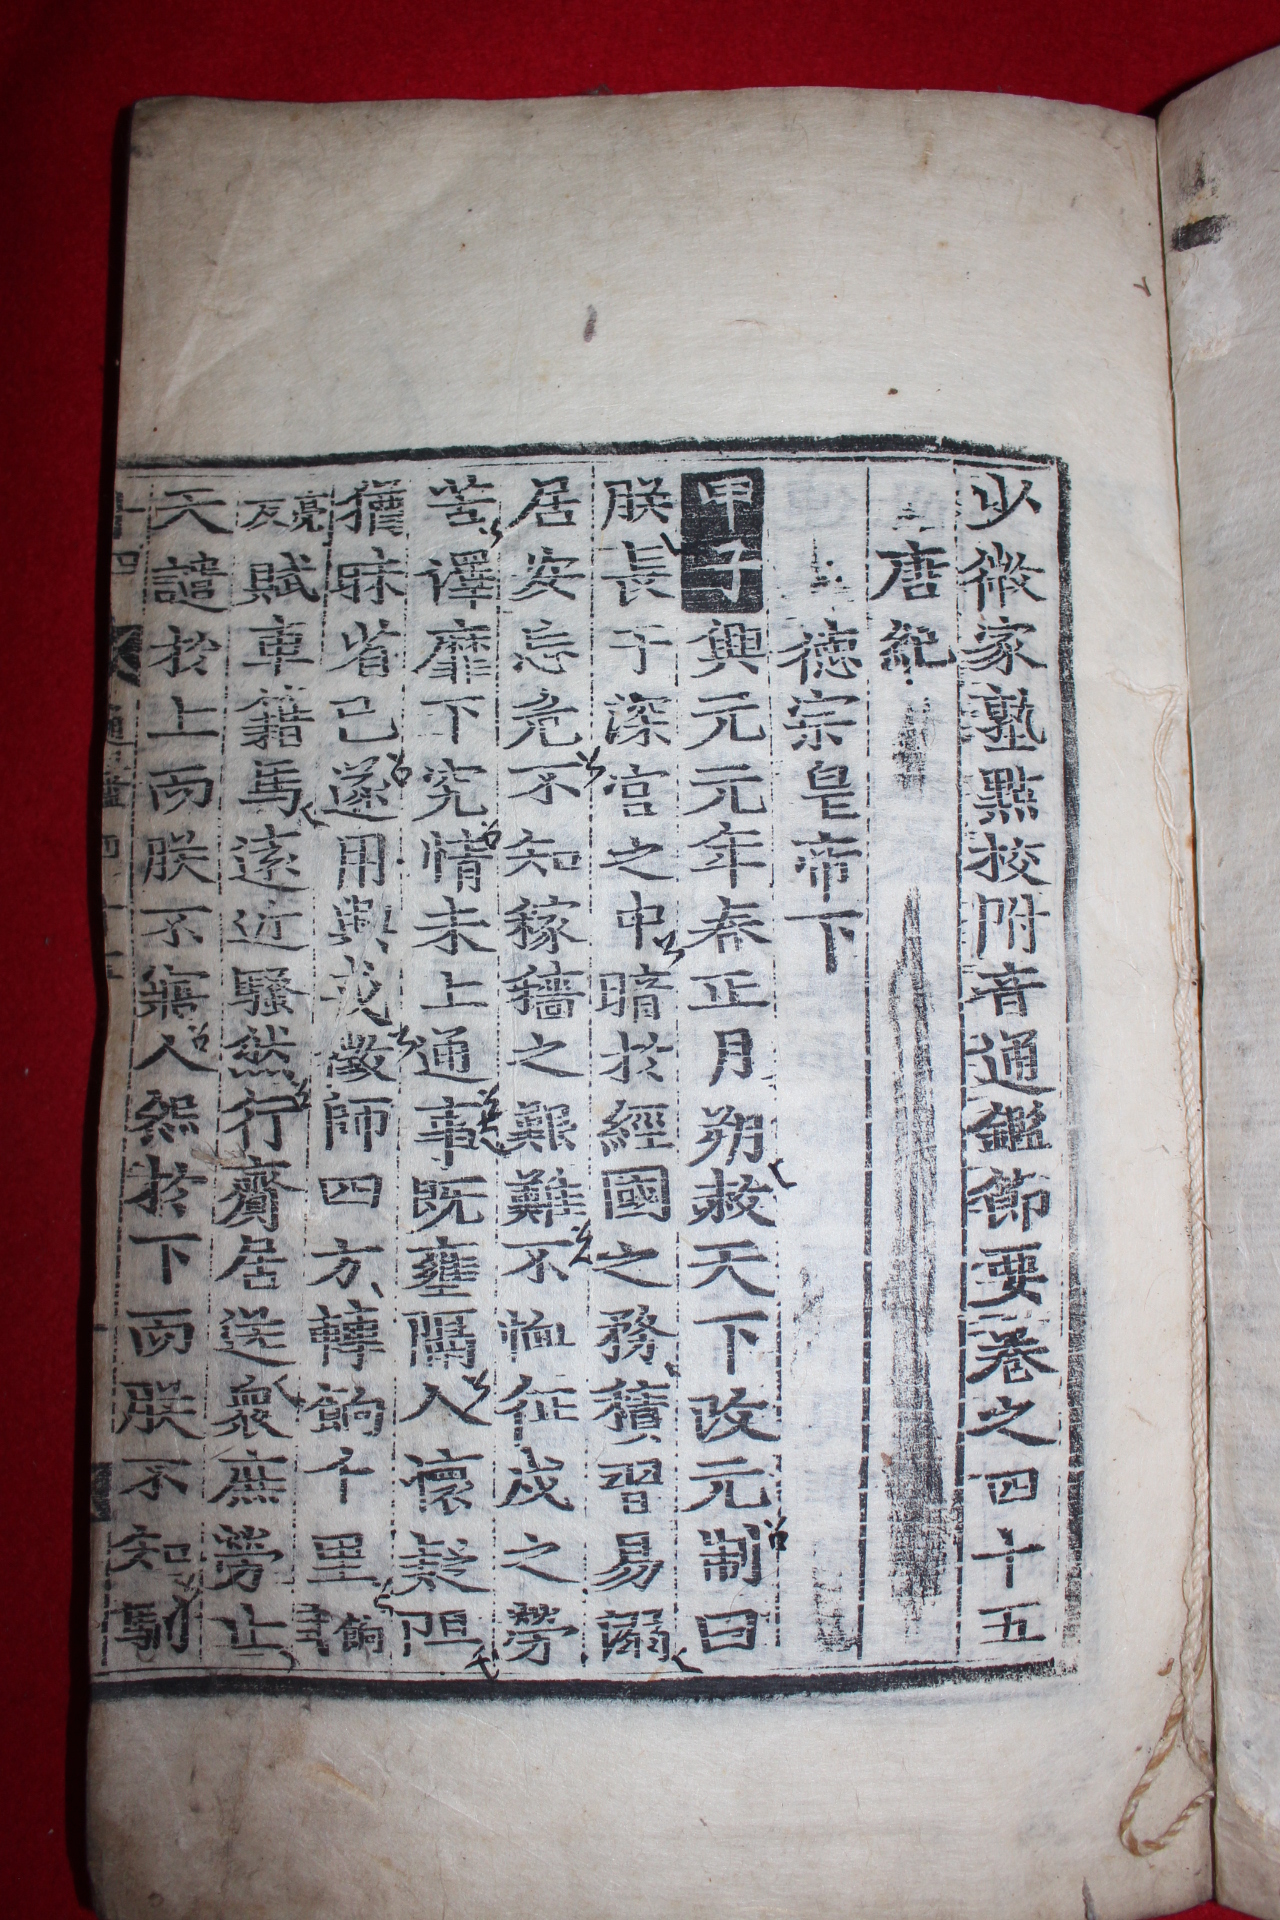 少微家塾點校附音通鑑節要卷之四十五
唐紀
德宗皇帝下
甲子興元元年春正月朔赦天下改元制曰
朕長于深宮之中暗於經國之務積習易溺
居安忘危不知稼穡之艱難不恤征戍之勞
苦澤靡下究情未上通事既壅隔人懷疑阻
猶昧省己遂用興戎徵師四方轉餉千里餉
亮反賦車籍馬遠近騷然行齎居送衆庶勞止
天譴於上而朕不寤人怨於下而朕不知馴